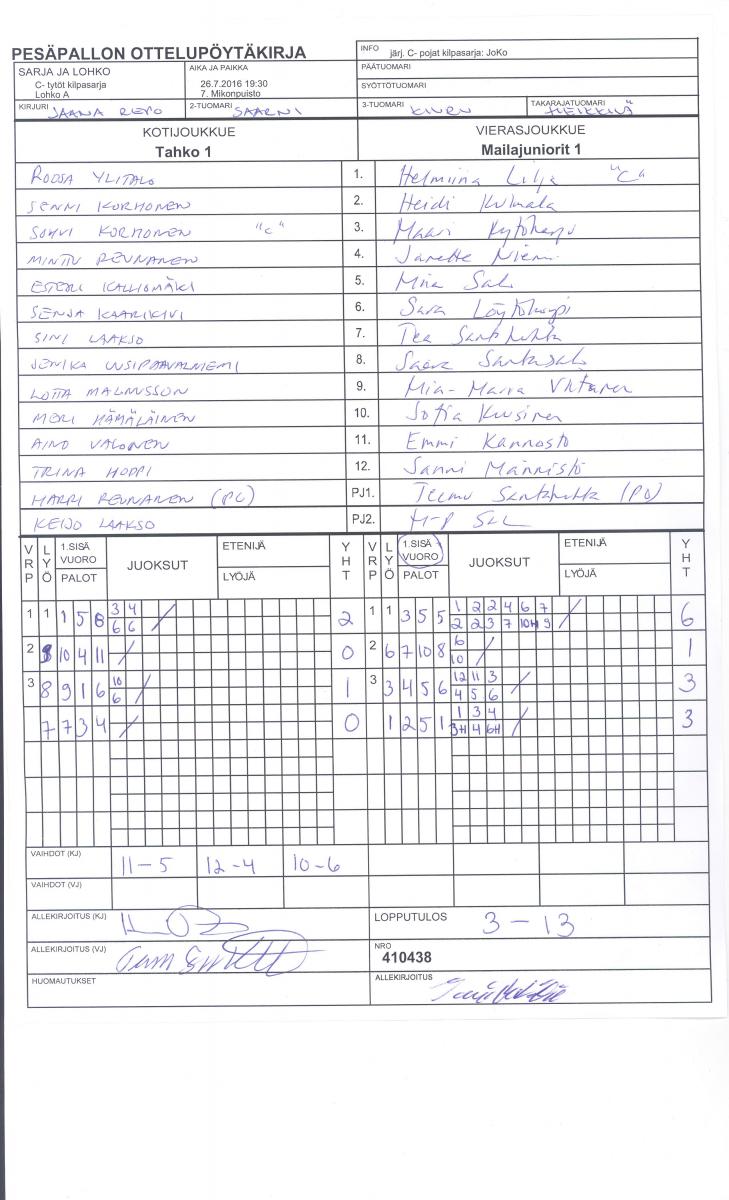 PESÄPALLON OTTELUPÖYTÄKIRJA
INFO järj. C- pojat kilpasarja: JoKo
SARJA JA LOHKO
C- tytöt kilpasarja
Lohko A
AIKA JA PAIKKA
26.7.2016 19:30
7. Mikonpuisto
PÄÄTUOMARI
SYÖTTÖTUOMARI
KIRJURI JAANA REPO 2-TUOMARI SAARNI 3-TUOMARI TAKARAJATUOMARI HEIKKILÄ
KOTIJOUKKUE VIERASJOUKKUE
Tahko 1 Mailajuniorit 1
ROOSA YLITALO 1. Helmiina Lilja "C"
SENNI KORHONEN 2. Heidi Kulmala
SOHVI KORHONEN "C" 3. Maari
MINTU REUNANEN 4. Janette Niemi
ESTERI KALLIOMÄKI 5. Miia Salo
SENJA KAARIKIVI 6. Sara Löytökorpi
SINI LAAKSO 7. Tea Santahuhta
JENIKA UUSIPAAVALNIEMI 8. Saara Santasalo
LOTTA MALMUSSON 9. Mia-Maria Virtanen
MERI HÄMÄLÄINEN 10. Sofia Kuusinen
AINO VALONEN 11. Emmi Kannosto
TRINA HOPPI 12. Sanni Männistö
HARRI REUNANEN (PJ) PJ1. Teemu Santahuhta (PJ)
KEIJO LAAKSO PJ2. H-P
VRP LYÖ 1.SISÄ VUORO PALOT JUOKSUT ETENIJÄ LYÖJÄ YHT VRP LYÖ 1.SISÄ VUORO PALOT JUOKSUT ETENIJÄ LYÖJÄ YHT
1 1 1 5 8 3 4 / 2 1 1 3 5 5 1 2 2 4 6 7 / 6
6 6 2 2 3 7 10H 9
2 9 10 4 11 / 0 2 6 7 10 8 6 / 1
10
3 8 9 1 6 10 / 1 3 3 4 5 6 12 11 3 / 3
6 4 5 6
7 7 3 4 / 0 1 2 5 1 1 3 4 / 3
3H 4 6H
VAIHDOT (KJ) 11-5 12-4 10-6
VAIHDOT (VJ)
ALLEKIRJOITUS (KJ) LOPPUTULOS 3 - 13
ALLEKIRJOITUS (VJ) NRO
410438
HUOMAUTUKSET ALLEKIRJOITUS